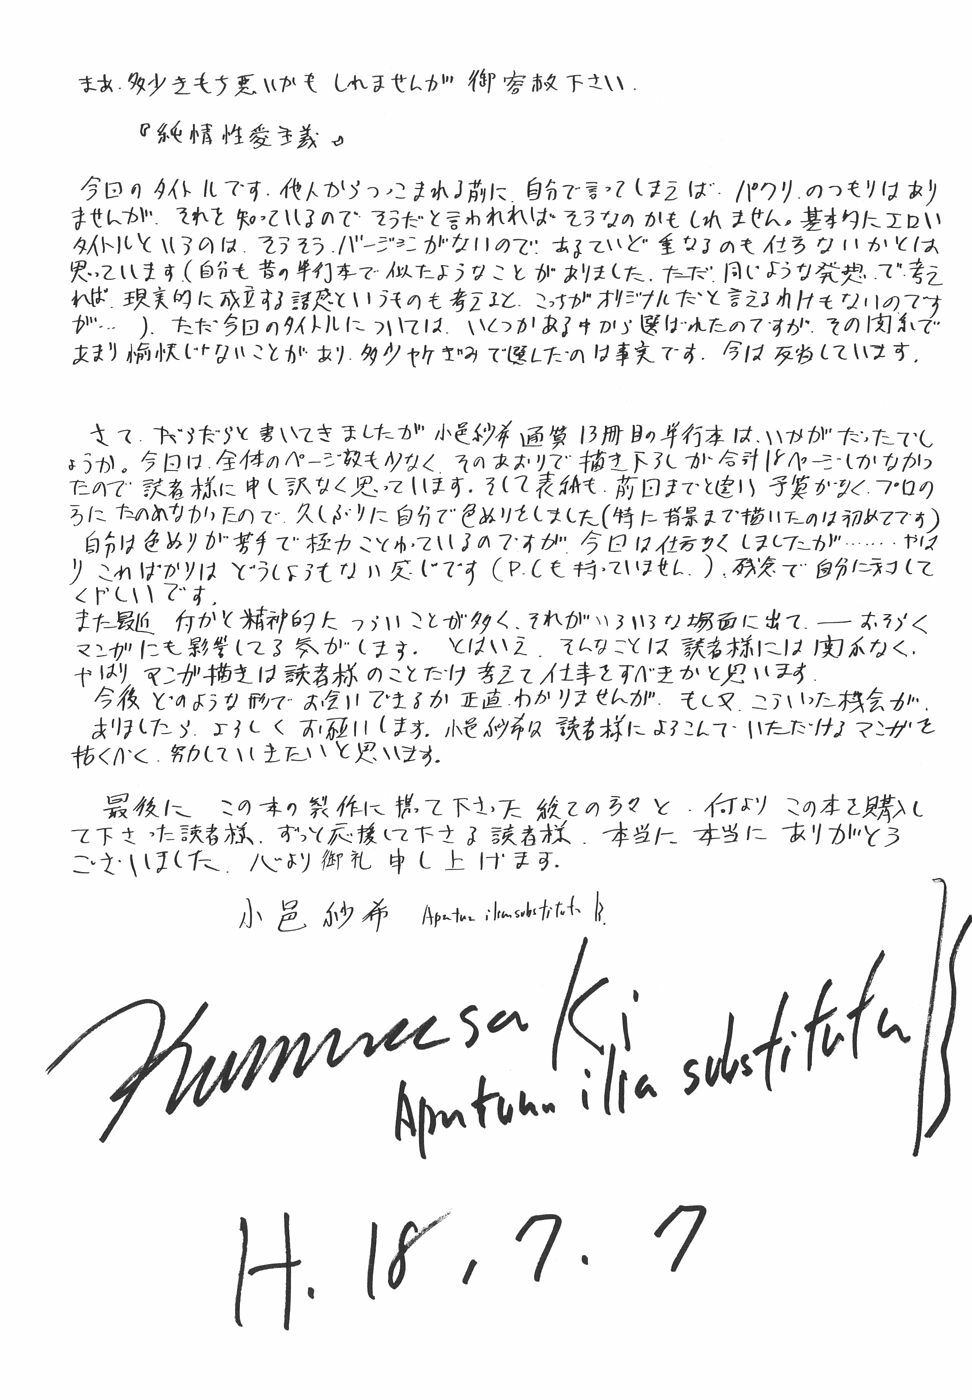 まあ、多少きもち悪いかもしれませんが御容赦下さい.
『純情性愛主義』
今回のタイトルです. 他人からつっこまれる前に、自分で言ってしまえば、パクリ、のつもりはあり
ませんが、それを知っているのでそうだと言われればそうなのかもしれません。基本的にエロい
タイトルというのは、そうそうバージョンがないので、あるていど重なるのも仕方ないかとは
思っています(自分も昔の単行本で似たようなことがありました、ただ、同じような発想、で考え
れば、現実的に成立する誘惑というものも考えると、こっちがオリジナルだと言えるわけもないのです
が… ). ただ今回のタイトルについては、いくつかある中から選ばれたのですが、その関係で
あまり愉快じゃないことがあり、多少ヤケぎみで選んだのは事実です. 今は反省しています.
さて、だらだらと書いてきましたが小邑紗希通算13冊目の単行本は、いかがだったでし
ょうか。今回は、全体のページ数も少なく、そのあおりで描き下ろしが合計18ページしかなかっ
たので読者様に申し訳なく思っています. そして表紙も、前回までと違い予算がなく、プロの
方にたのめなかったので、久しぶりに自分で色ぬりをしました(特に背景まで描いたのは初めてです)
自分は色ぬりが苦手で極力ことわっているのですが、今回は仕方なくしましたが……やは
りこればかりはどうしようもない感じです(P.Cも持っていません.). 残念で自分に対して
くやしいです.
また最近 何かと精神的につらいことが多く、それがいろいろな場面に出て、―おそらく
マンガにも影響してる気がします. とはいえ、そんなことは読者様には関係なく、
やはりマンガ描きは読者様のことだけ考えて仕事をすべきかと思います.
今後どのような形でお会いできるか正直わかりませんが、もし又、こういった機会が、
ありましたら、よろしくお願いします. 小邑紗希は読者様によろこんでいただけるマンガを
描くべく、努力していきたいと思います.
最後に この本の製作に携って下さった総ての方々と、何よりこの本を購入し
て下さった読者様、ずっと応援して下さる読者様、本当に本当にありがとう
ございました. 心より御礼申し上げます.
小邑紗希 Apatura ilia substituta B.
KumuuesaKi
Apatura ilia substituta B
H.18,7.7